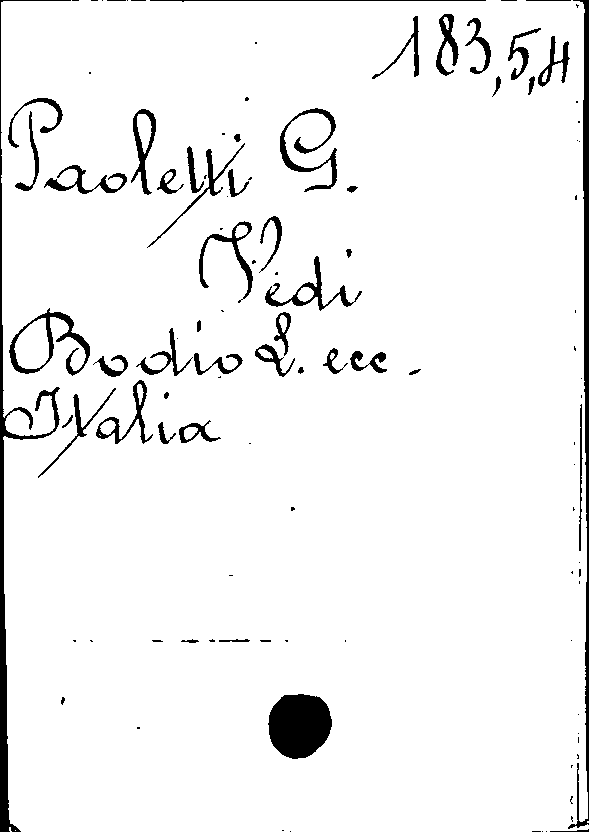 183,5,4
Paoletti G.
Vedi
Bodio L. ecc.
Italia